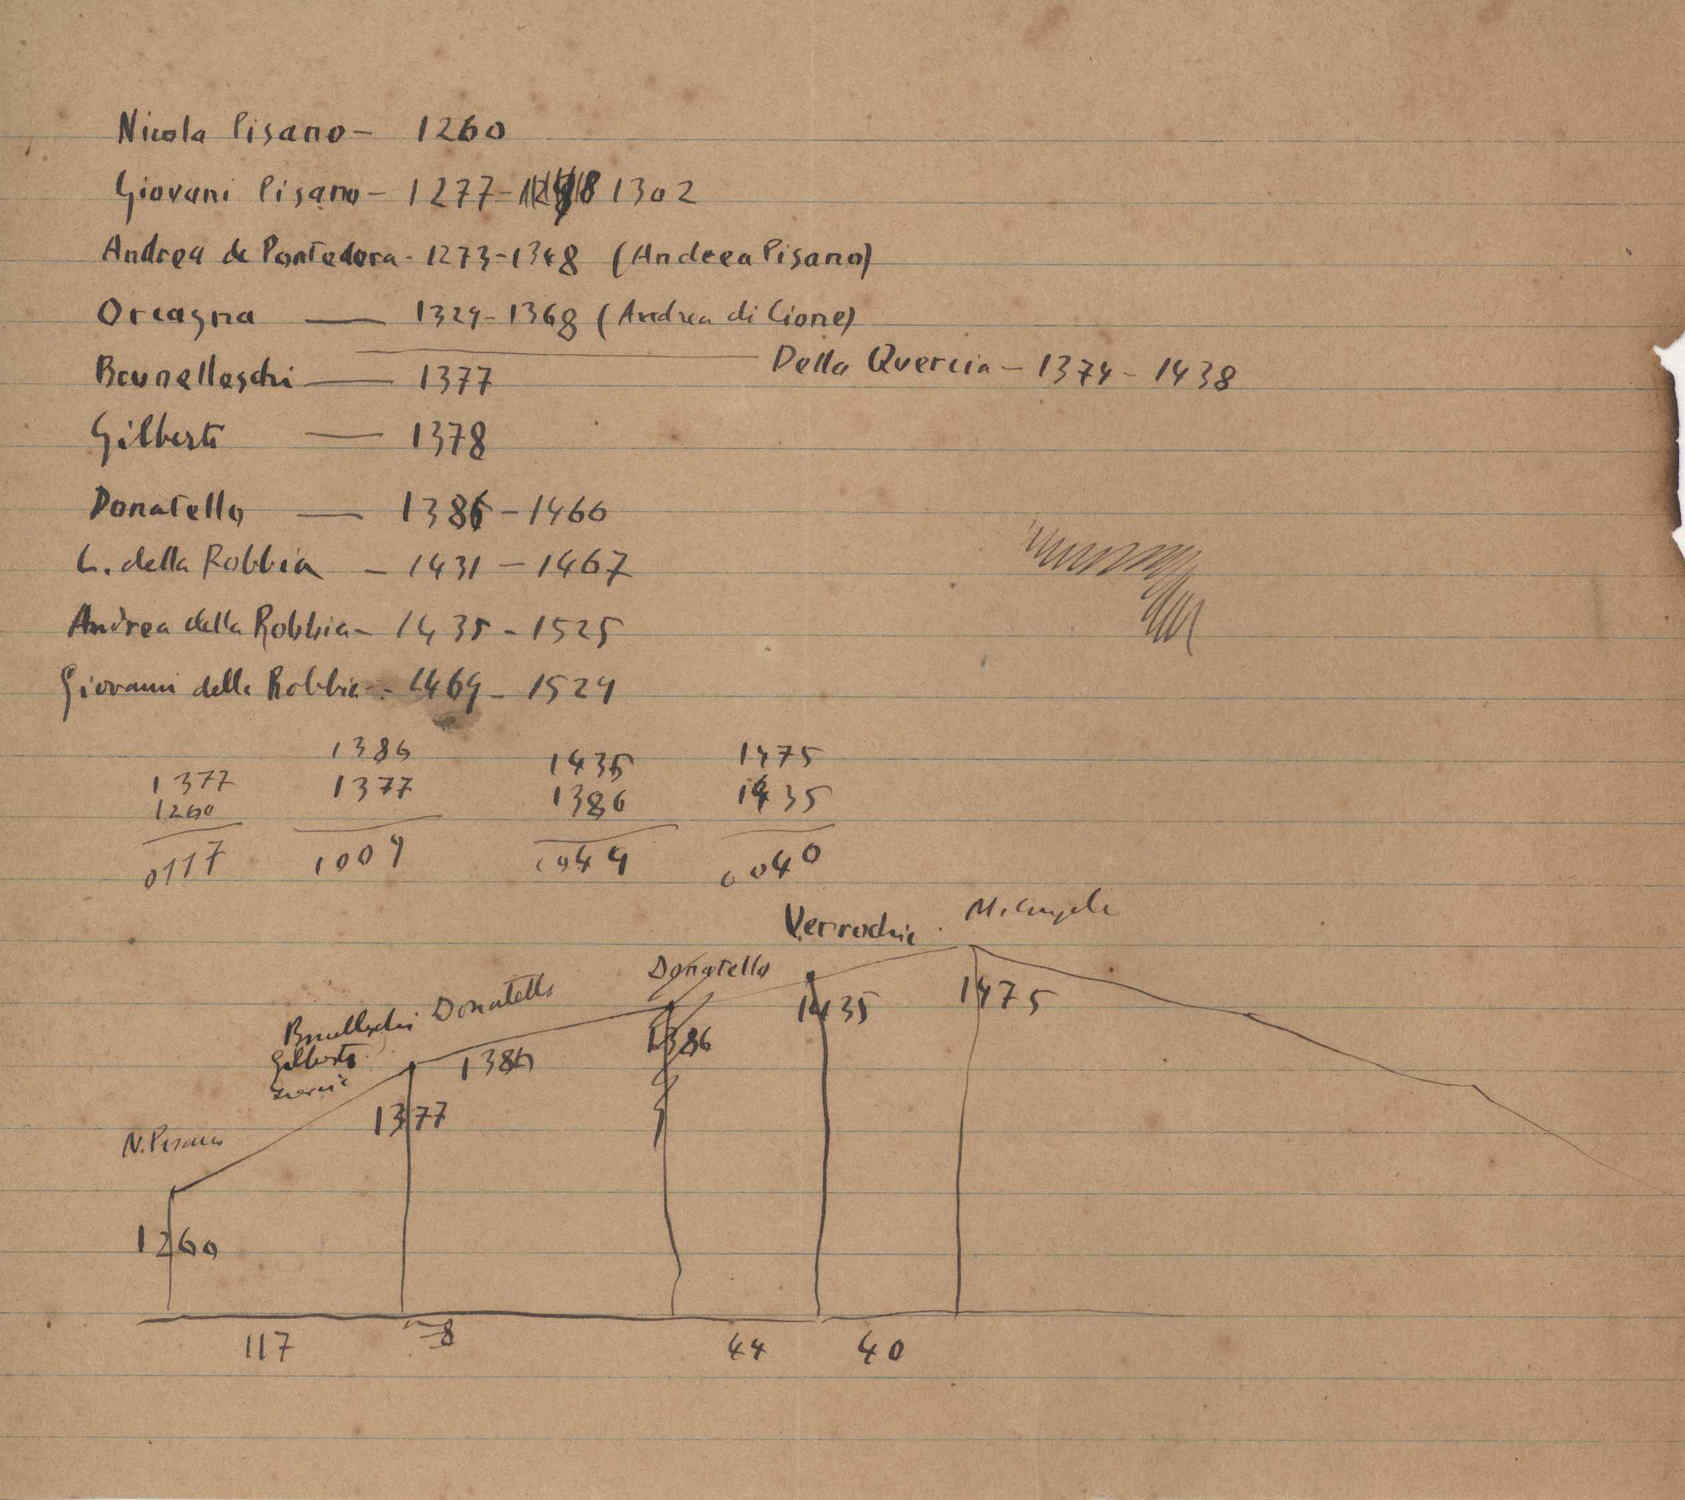 Nicola Pisano - 1260
Giovani Pisano - 1277 - 1302
Andrea de Pontedera - 1273-1348 (Andrea Pisano)
Orcagna — 1329-1368 (Andrea di Cione)
Della Quercia - 1374 - 1438
Brunelleschi — 1377
Gilberti — 1378
Donatello — 1386 - 1466
L. della Robbia - 1431 - 1467
Andrea della Robbia - 1435 - 1525
Giovanni della Robbia - 1469 - 1529
1386 1435 1475
1377 1377 1386 1435
1260
0117 1009 0044 0040
Verrochio Mi Angelo
Donatello
Brunelleschi Donatello
1435 1475
Gilberti 1386 1386
1377
N. Pisano
1260
117 8 44 40